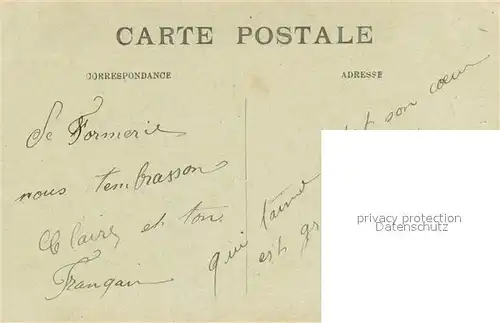 CARTE POSTALE
CORRESPONDANCE
ADRESSE
De Formerie
nous tembrasson
Claire et ton
Françain
son coeur
qui t'aime
est gr
privacy protection
Datenschutz